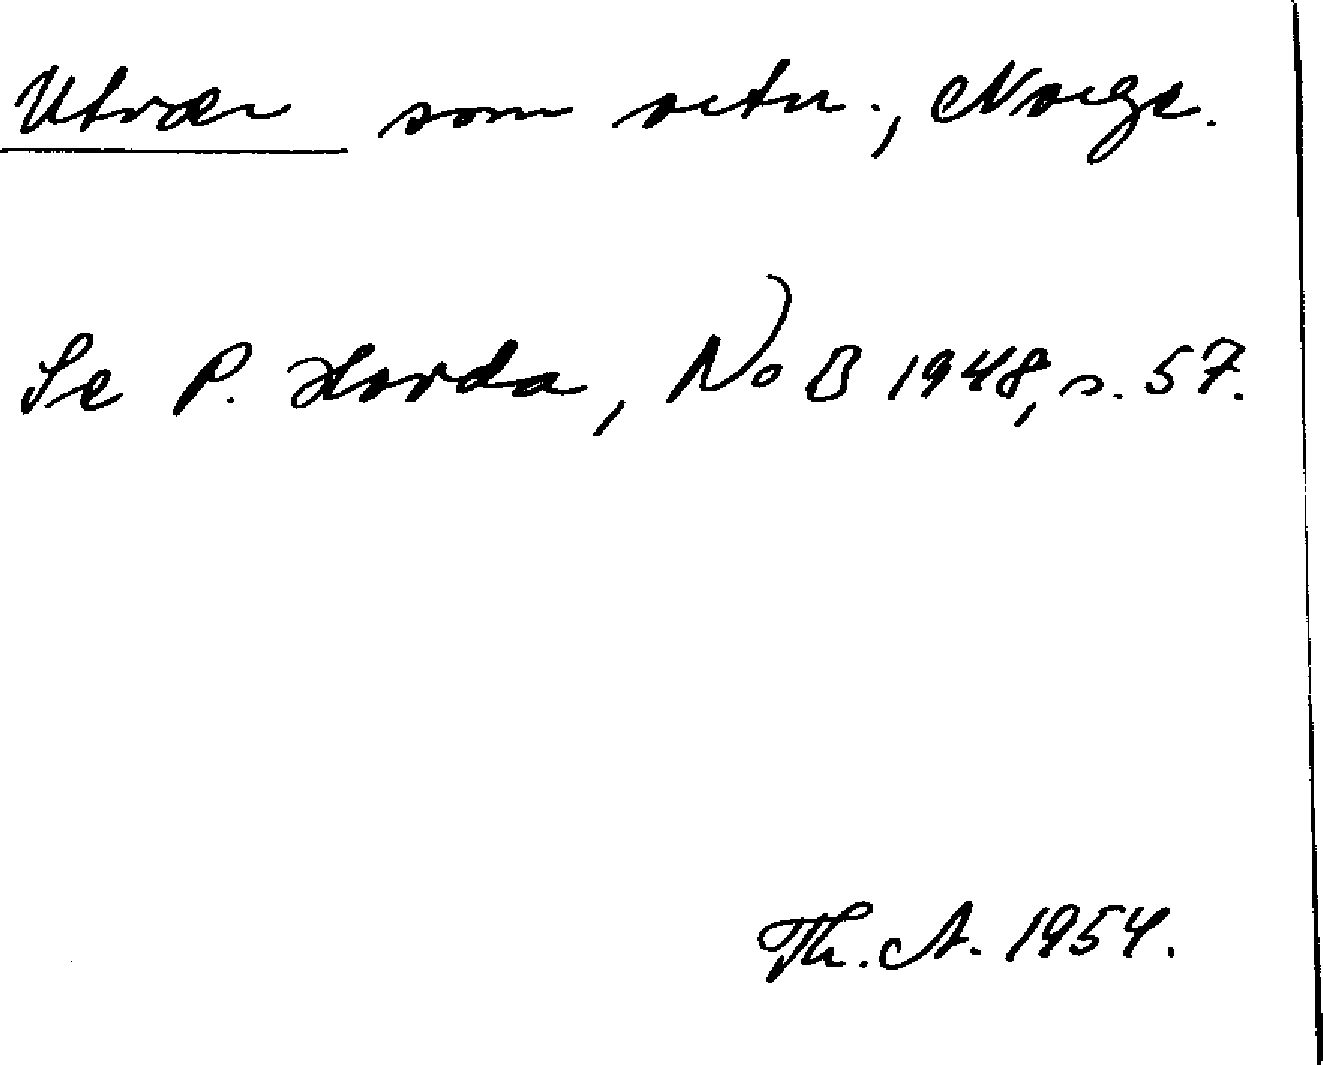 Utvær som ortn., Norge.
Se P. Hovda, NoB 1948, s. 57.
Th. A. 1954.